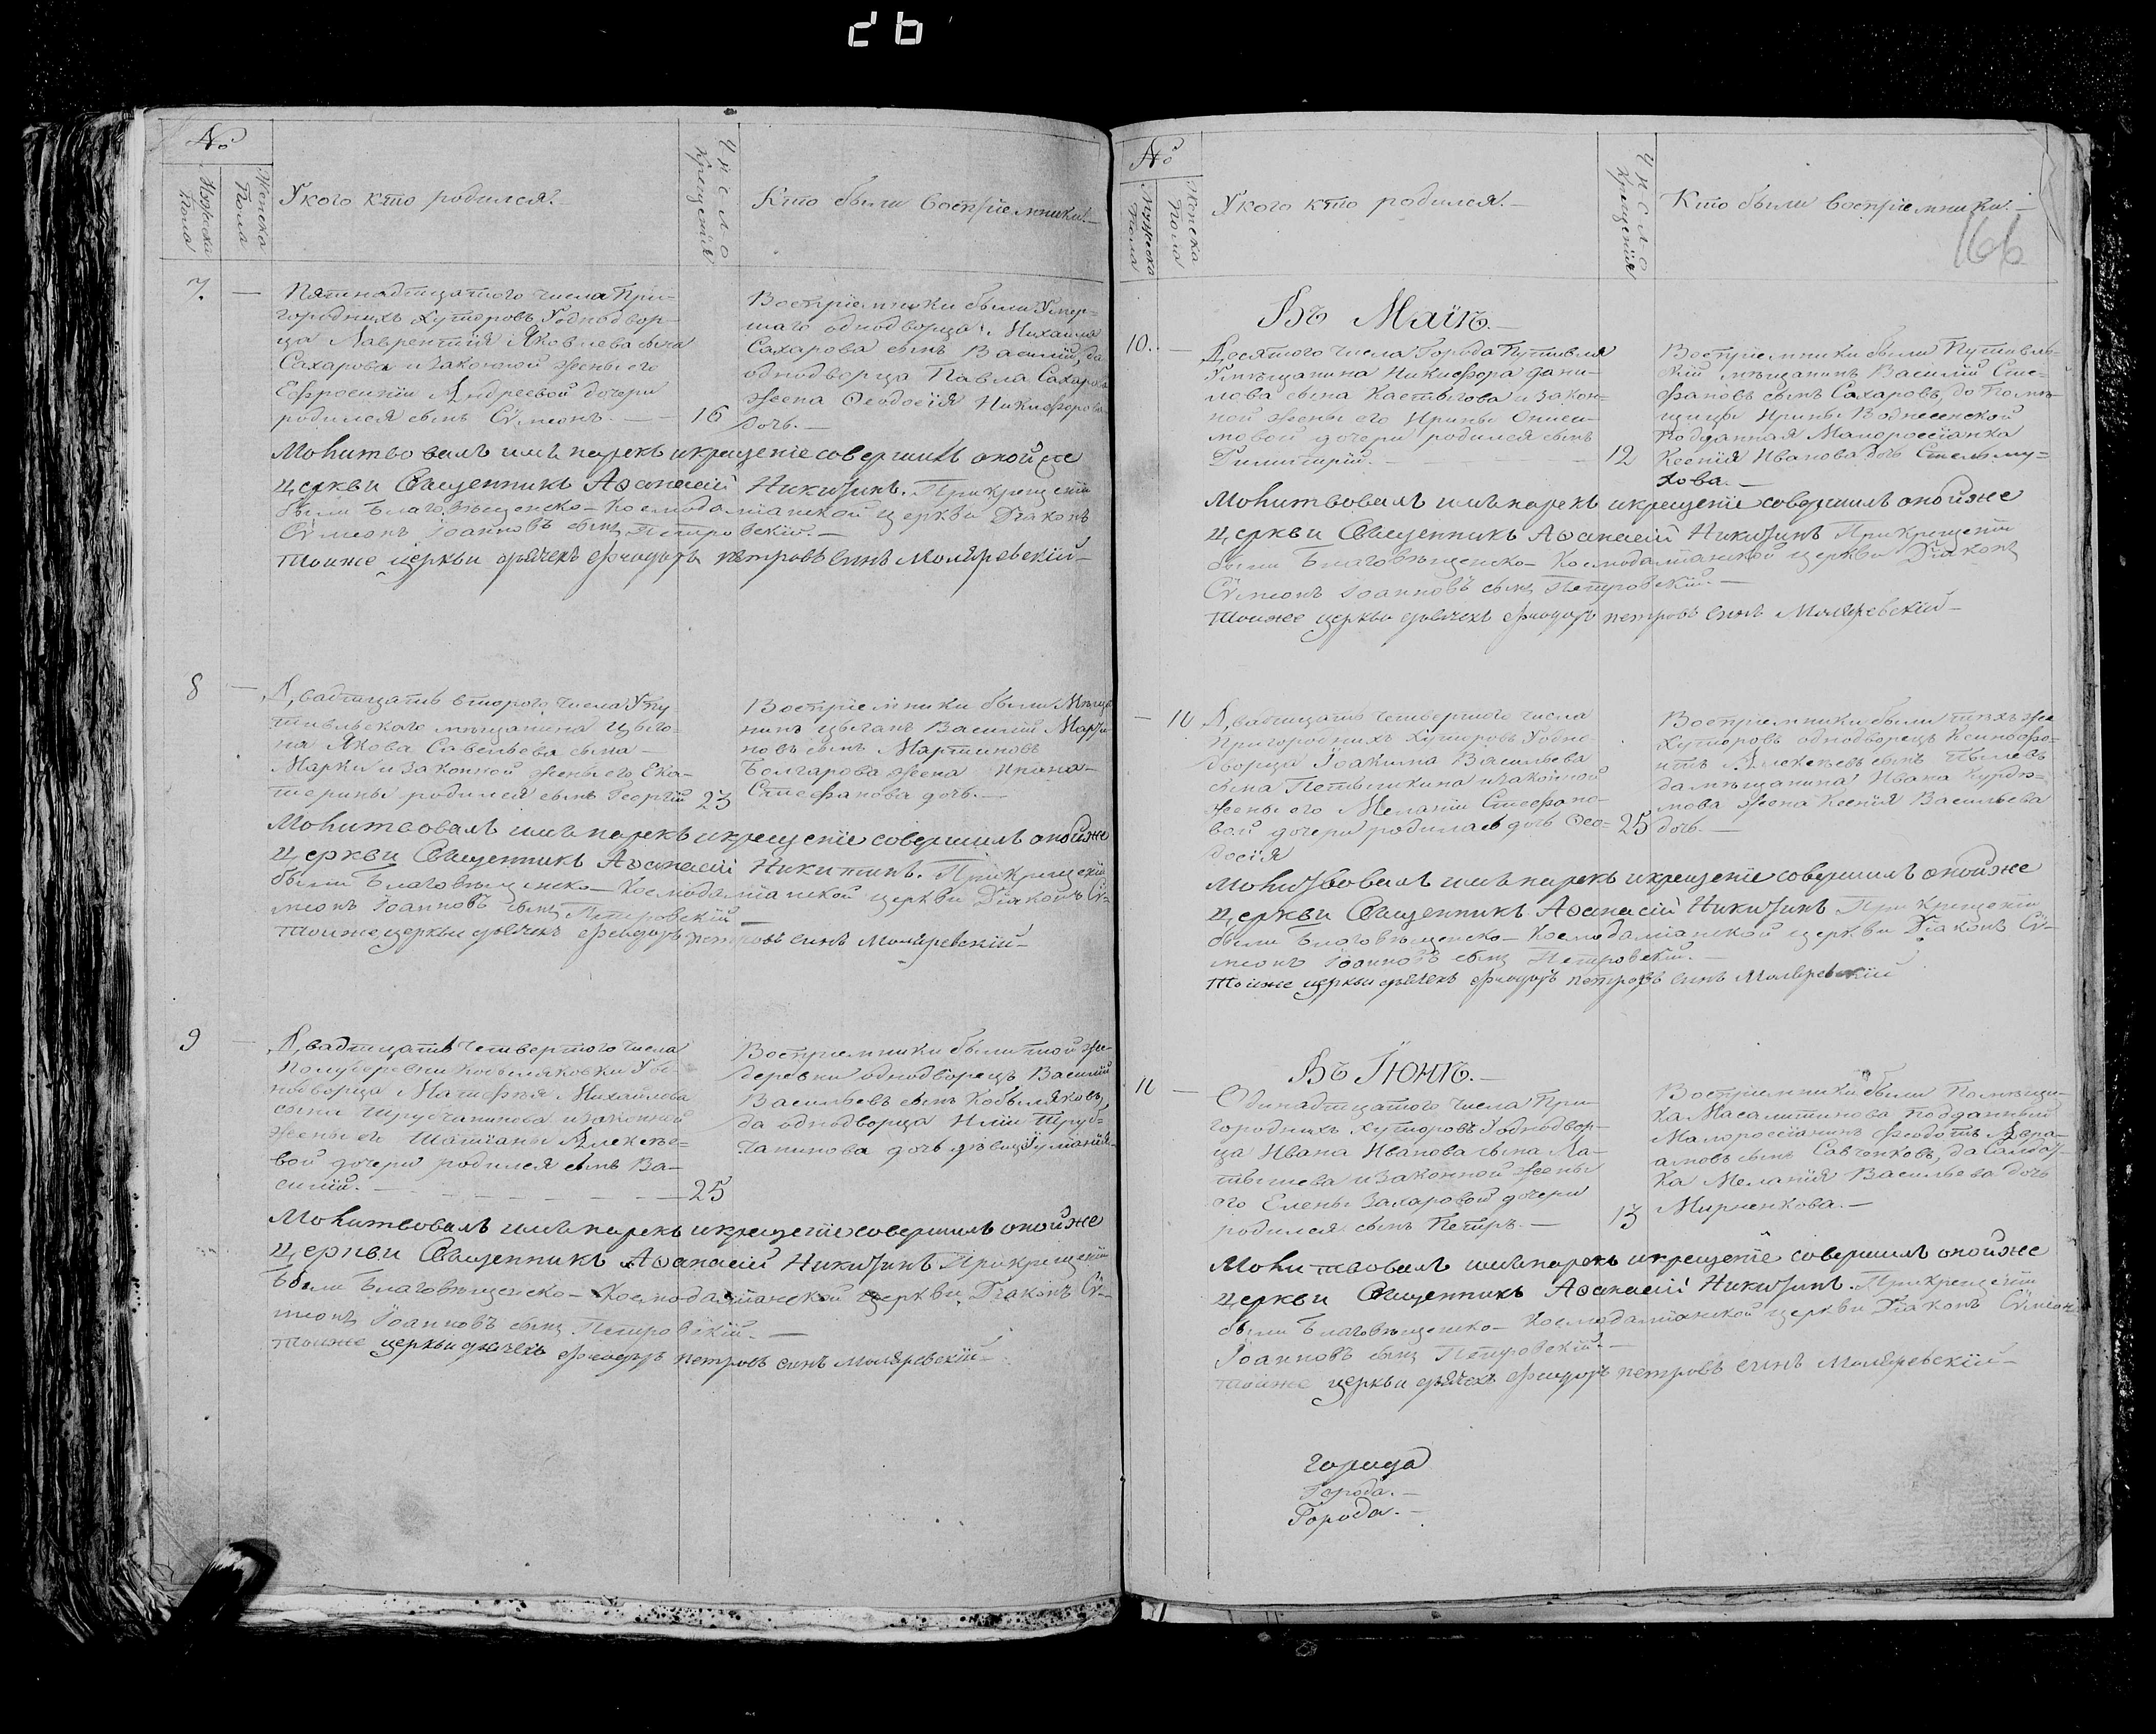 26
№
Мужеска Пола
Женска Пола
У кого кто родился?
Число Крещенія
Кто были Воспріемники.
7.
Пятнадцатого числа При-
городнихъ Хуторовъ У однодвор-
ца Лаврентія Яковлева сына
Сахарова и законной жены его
Ефросиніи Андреевой дочери
родился сынъ Сѵмеонъ. —
16
Воспріемники были Умер-
шаго однодворца Михаила
Сахарова сынъ Василій, да
однодворца Павла Сахарова
жена Феодосія Никифорова
дочь. —
Молитвовалъ имя нарекъ и крещеніе совершилъ оной же
церкви Священникъ Афанасій Никитинъ. При крещеніи
были Благовѣщенско-Космодаміанской церкви Діаконъ
Сѵмеонъ Іоанновъ сынъ Петровскій. —
тоиже церкви дячекъ Феодоръ петровъ синъ Моляревскій —
8
Двадцать второго числа У Пу-
тивльского мещанина Цыга-
на Якова Савельева сына
Марки и законной жены его Ека-
терины родился сынъ Георгій
23
Воспріемники были Мѣща
нинъ цыганъ Василій Марти
новъ сынъ Мартиновъ
Болгарова жена Ирина
Стефанова дочь. —
Молитвовалъ имя нарекъ и крещеніе совершилъ оной же
церкви Священникъ Афанасій Никитинъ. При крещеніи
были Благовѣщенско-Космодаміанской церкви Діаконъ Сѵ-
меонъ Іоанновъ сынъ Петровскій —
тоиже церкви дячекъ Феодоръ петровъ синъ Моляревскій —
9
Двадцать четвертого числа
Полудеревни Кобыляковки У од-
нодворца Матфея Михайлова
сына и законной
жены его Татіаны Алексѣе-
вой дочери родился сынъ Ва-
силій. —
25
Воспріемники были той же
деревни однодворецъ Василій
Васильевъ сынъ Кобыляковъ,
да однодворца
дочь дѣвица
Молитвовалъ имя нарекъ и крещеніе совершилъ оной же
церкви Священникъ Афанасій Никитинъ При крещеніи
были Благовѣщенско-Космодаміанской церкви Діаконъ Сѵ-
меонъ Іоанновъ сынъ Петровскій. —
тоиже церкви дячекъ Феодоръ петровъ синъ Моляревскій —
№
Мужеска Пола
Женска Пола
У кого кто родился. —
Число Крещенія
Кто были Воспріемники. —
166
Въ Маіѣ. —
10. —
Десятого числа Города Путивля
У мѣщанина Никифора Дани-
лова сына Костыгова и закон-
ной жены его Ирины Ониси-
мовой дочери родился сынъ
Димитрій. —
12
Воспріемники были Путивль-
скій мѣщанинъ Василій Сте-
фановъ сынъ Сахаровъ, да Помѣ-
щицы Ирины Вознесенской
Подданная Малороссіанка
Ксенія Иванова дочь Стельму-
хова. —
Молитвовалъ имя нарекъ и крещеніе совершилъ оной же
церкви Священникъ Афанасій Никитинъ При крещеніи
были Благовѣщенско-Космодаміанской церкви Діаконъ
Сѵмеонъ Іоанновъ сынъ Петровскій. —
тоиже церкви дячекъ Феодоръ петровъ синъ Моляревскій —
— 10
Двадцать четвертого числа
Пригородныхъ Хуторовъ У одно-
дворца Іоакима Васильева
сына и законной
жены его Меланіи Стефано-
вой дочери родилась дочь Фео-
досія
25
Воспріемники были тѣхъ же
хуторовъ однодворецъ Ксенофо-
нтъ Алексѣевъ сынъ
да мѣщанина Ивана Курдю-
мова жена Ксенія Васильева
дочь. —
Молитвовалъ имя нарекъ и крещеніе совершилъ оной же
церкви Священникъ Афанасій Никитинъ При крещеніи
были Благовѣщенско-Космодаміанской церкви Діаконъ Сѵ-
меонъ Іоанновъ сынъ Петровскій. —
тоиже церкви дячекъ Феодоръ петровъ синъ Моляревскій
Въ Іюнѣ. —
11 —
Одинадцатого числа При-
городнихъ Хуторовъ У однодвор-
ца Ивана Иванова сына Ла-
тышева и законной жены
его Елены Захаровой дочери
родился сынъ Петръ. —
13
Воспріемники были Помѣщи-
ка Масалитинова подданный
Малороссіанинъ Феодотъ Авра-
амовъ сынъ Савченковъ, да
Меланія Васильева дочь
Мирненкова. —
Молитвовалъ имя нарекъ и крещеніе совершилъ оной же
церкви Священникъ Афанасій Никитинъ. При крещеніи
были Благовѣщенско-Космодаміанской церкви Діаконъ Сѵмеонъ
Іоанновъ сынъ Петровскій. —
тоиже церкви дячекъ Феодоръ петровъ синъ Моляревскій —
Города
Города. —
Города. —